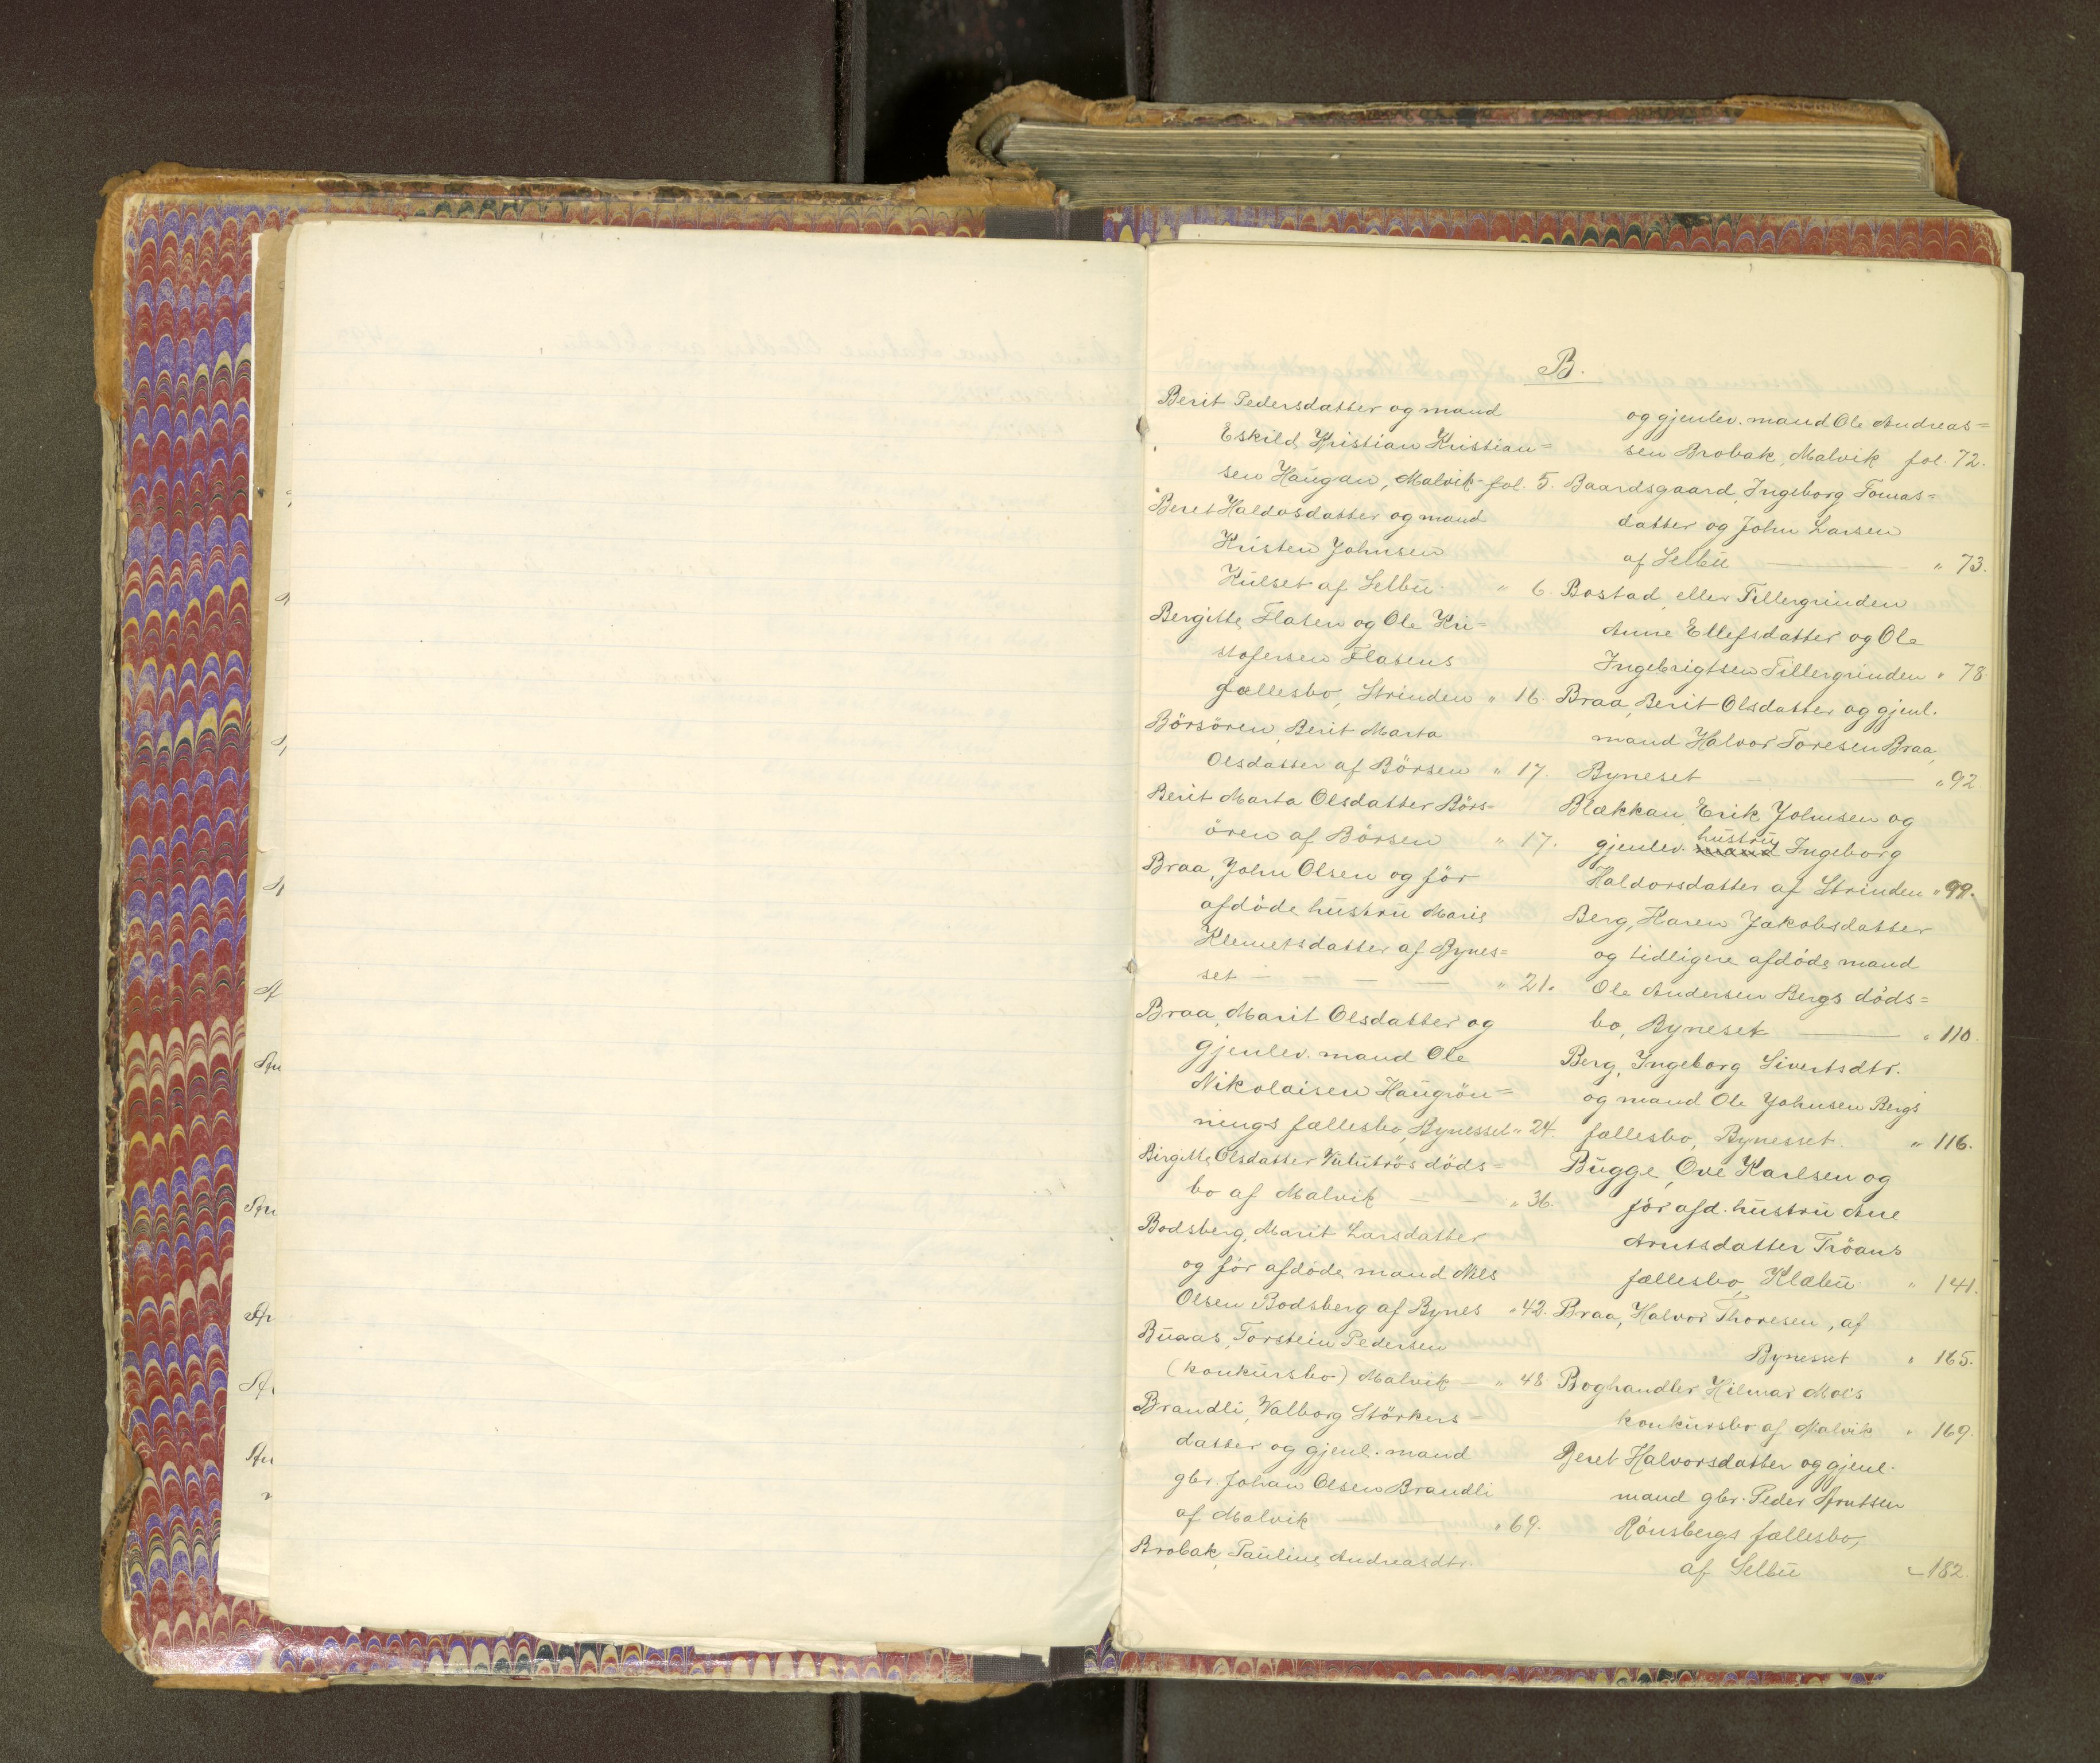 B.
Berit Pedersdatter og mand
Eskild Kristian Kristian=
sen Haugan, Malvik - fol. 5.
Beret Haldosdatter og mand
Kristen Johnsen
Kulset af Selbu. " 6.
Bergitte Flaten og Ole Kri=
stofersen Flatens
fællesbo, Strinden " 16.
Börsören, Berit Marta
Olsdatter af Börsen " 17.
Berit Marta Olsdatter Börs=
ören af Börsen " 17.
Braa, John Olsen og för
afdöde hustru Marie
Klemetsdatter af Bynes=
set — — — — " 21.
Braa, Marit Olsdatter og
gjenlev. mand Ole
Nikolaisen Haugrön=
nings fællesbo, Bynesset " 24.
Birgitte Olsdatter döds=
bo af Malvik — — " 36.
Bodsberg, Marit Larsdatter
og för afdöde mand Nils
Olsen Bodsberg af Bynes " 42.
Buaas, Torstein Pedersen
(konkursbo) Malvik — " 48
Brandli, Valborg Störkers
datter og gjenl. mand
gbr. Johan Olsen Brandli
af Malvik — " 69.
Brobak, Pauline Andreasdtr.
og gjenlev. mand Ole Andreas=
sen Brobak, Malvik fol. 72.
Baardsgaard, Ingeborg Tomas=
datter og John Larsen
af Selbu — " 73.
Bostad eller Tillergrinden
Anne Ellefsdatter og Ole
Ingebrigtsen Tillergrinden " 78
Braa, Berit Olsdatter og gjenl.
mand Halvor Toresen Braa,
Byneset — — " 92
Blækkan, Erik Johnsen og
gjenlev. mand hustru Ingeborg
Haldorsdatter af Strinden " 99.
Berg, Karen Jakobsdatter
og tidligere afdöde mand
Ole Andersen Bergs döds=
bo, Byneset — " 110.
Berg, Ingeborg Sivertsdtr.
og mand Ole Johnsen Bergs
fællesbo, Bynesset. " 116.
Bugge, Ove Karlsen og
för afd. hustru Ane
Arntsdatter Tröans
fællesbo, Klæbu " 141.
Braa, Halvor Thoresen, af
Bynesset " 165.
Boghandler Hilmar Moe's
konkursbo af Malvik " 169.
Beret Halvorsdatter og gjenl.
mand gbr. Peder Arntsen
Rönsbergs fællesbo,
af Selbu " 182.